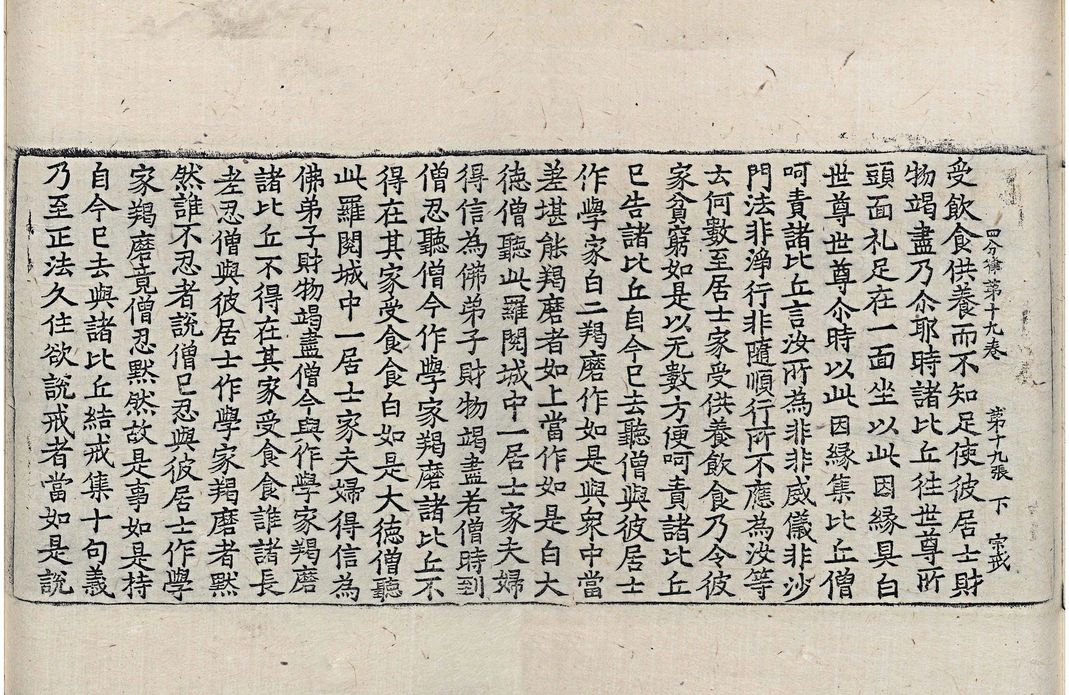 四分律第十九卷 第十九張 下 戒
受飲食供養而不知足使彼居士財
物竭盡乃尒耶時諸比丘往世尊所
頭面礼足在一面坐以此因緣具白
世尊世尊尒時以此因緣集比丘僧
呵責諸比丘言汝所為非非威儀非沙
門法非淨行非隨順行所不應為汝等
云何數至居士家受供養飲食乃令彼
家貧窮如是以无數方便呵責諸比丘
已告諸比丘自今已去聽僧與彼居士
作學家白二羯磨作如是與衆中當
差堪能羯磨者如上當作如是白大
德僧聽此羅閱城中一居士家夫婦
得信為佛弟子財物竭盡若僧時到
僧忍聽僧今作學家羯磨諸比丘不
得在其家受食食白如是大德僧聽
此羅閱城中一居士家夫婦得信為
佛弟子財物竭盡僧今與作學家羯磨
諸比丘不得在其家受食食誰諸長
老忍僧與彼居士作學家羯磨者默
然誰不忍者說僧已忍與彼居士作學
家羯磨竟僧忍默然故是事如是持
自今已去與諸比丘結戒集十句義
乃至正法久住欲說戒者當如是說